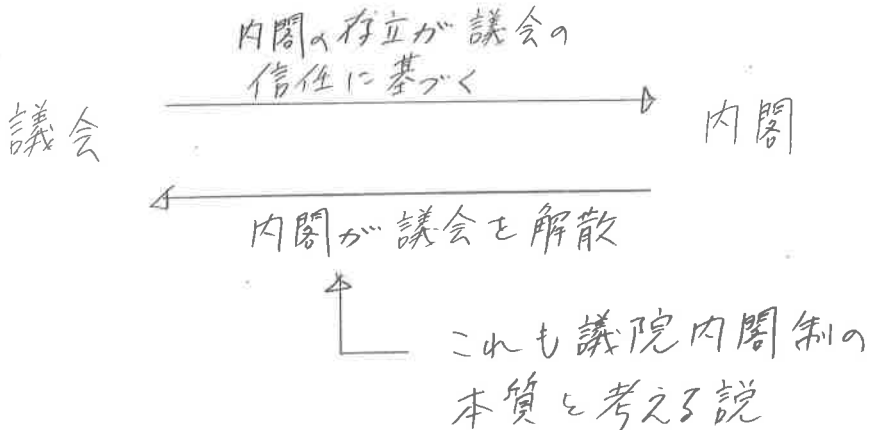 内閣の存立が議会の
信任に基づく
議会
内閣
内閣が議会を解散
これも議院内閣制の
本質と考える説